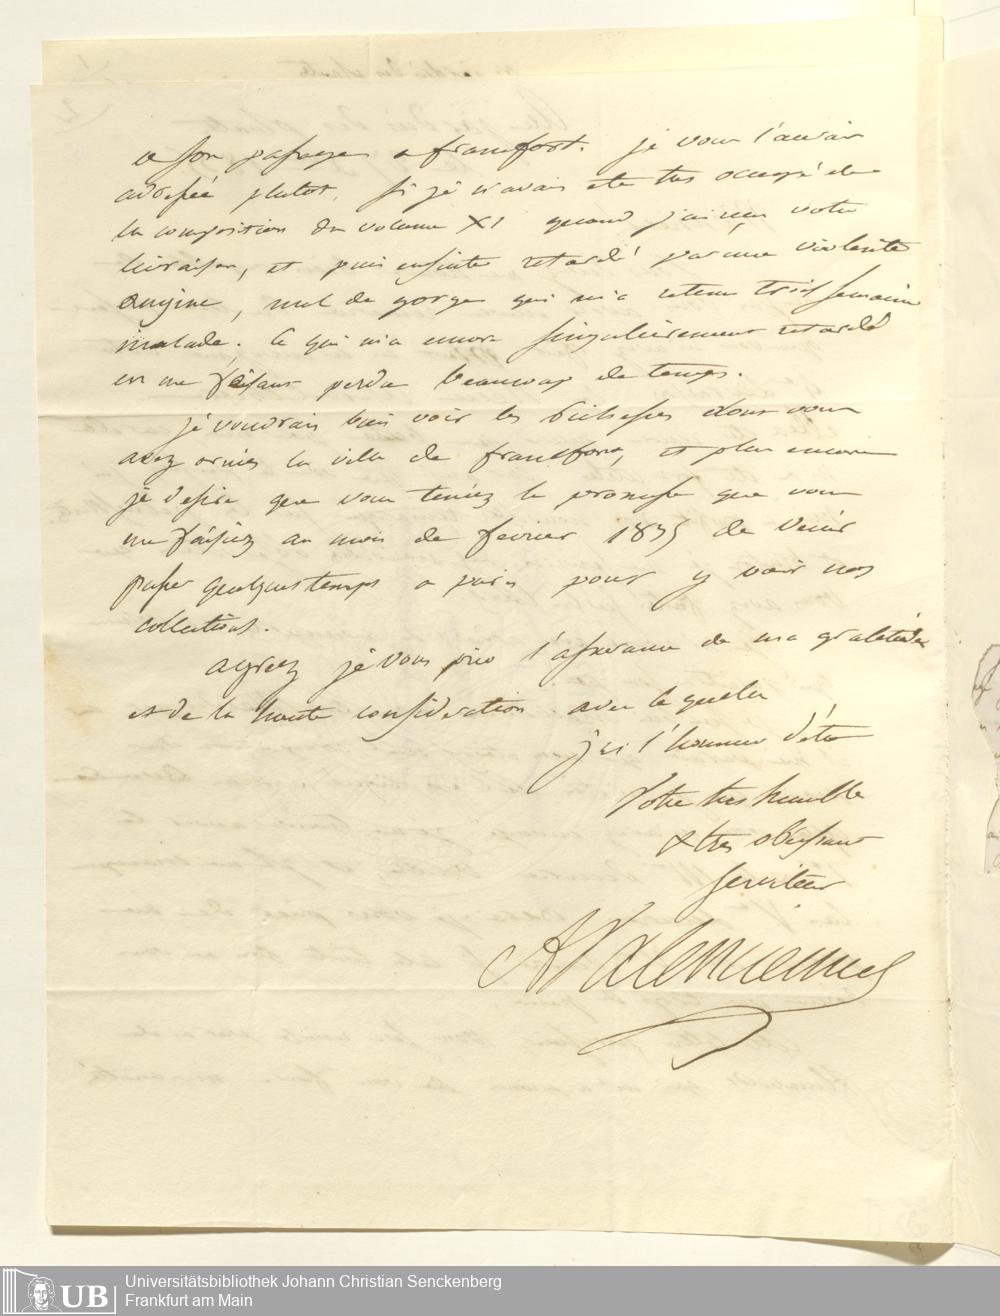 a son passage a francfort. je vous l'aurais
adressée plutot, si je n'avais ete tres occupé de
la composition du volume XI quand j'ai reçu votre
livraison, et puis ensuite retardé par une violente
angine, mal de gorge qui m'a retenu trois semaines
malade. Ce qui m'a encore singulièrement retardé
en me faisant perdre beaucoup de temps.
je voudrais bien voir les richesses dont vous
avez ornés la ville de francfort, et plus encore
je desire que vous teniez la promesse que vous
me faisiez au mois de fevrier 1835 de venir
passer quelques temps a paris pour y voir nos
collections.
agreez je vous prie l'assurance de ma gratitude
et de la haute consideration avec laquelle
j'ai l'honneur d'être
Votre tres humble
& tres obeissant
serviteur
A Valenciennes
Universitätsbibliothek Johann Christian Senckenberg
Frankfurt am Main
UB